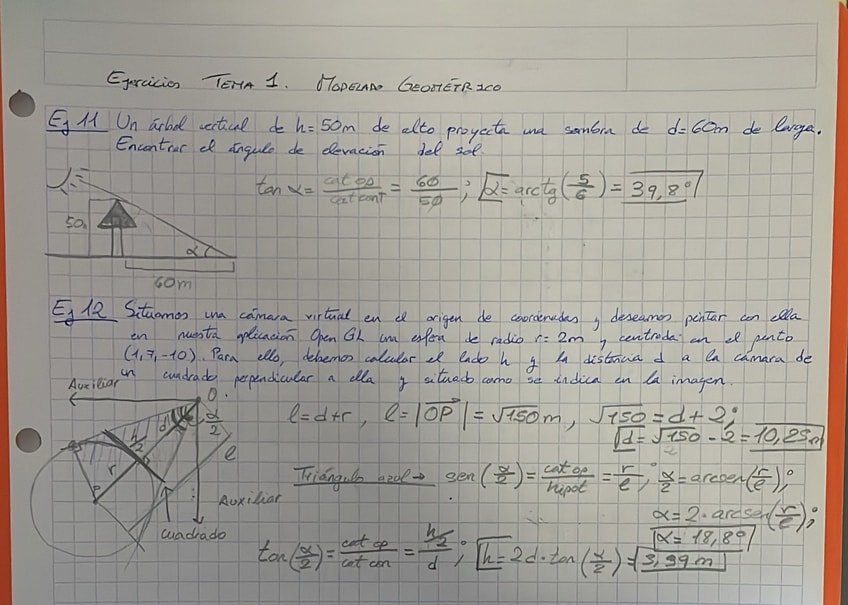 Ejercicios TEMA 1. MODELADO GEOMÉTRICO
Ej 11 Un árbol vertical de h=50m de alto proyecta una sombra de d=60m de larga.
Encontrar el ángulo de elevación del sol.
tan α = cat op / cat cont = 60/50 ; α = arctg(5/6) = 39,8º
50
α
60m
Ej 12 Situamos una cámara virtual en el origen de coordenadas y deseamos pintar con ella
en nuestra aplicación Open GL una esfera de radio r=2m y centrada en el punto
(1,7,-10). Para ello, debemos calcular el lado h y la distancia d a la cámara de
un cuadrado perpendicular a ella y situado como se indica en la imagen.
Auxiliar
O
l = d+r , l = |OP| = √150 m , √150 = d+2 ;
d = √150 - 2 = 10,25m
h/2
d
α/2
l
r
P
Triángulo azul → sen(α/2) = cat op / hipot = r/l ; α/2 = arcsen(r/l) ;
Auxiliar
α = 2·arcsen(r/l) ;
α = 18,8º
cuadrado
tan(α/2) = cat op / cat con = h/2 / d ; h = 2d·tan(α/2) = 3,39m